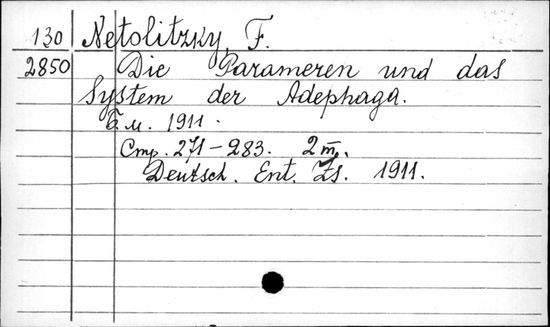 130 Netolitzky, F.
2850 Die Parameren und das
System der Adephaga.
б.м. 1911.
Стр. 271-283. 2
Deutsch. Ent. Zs. 1911.